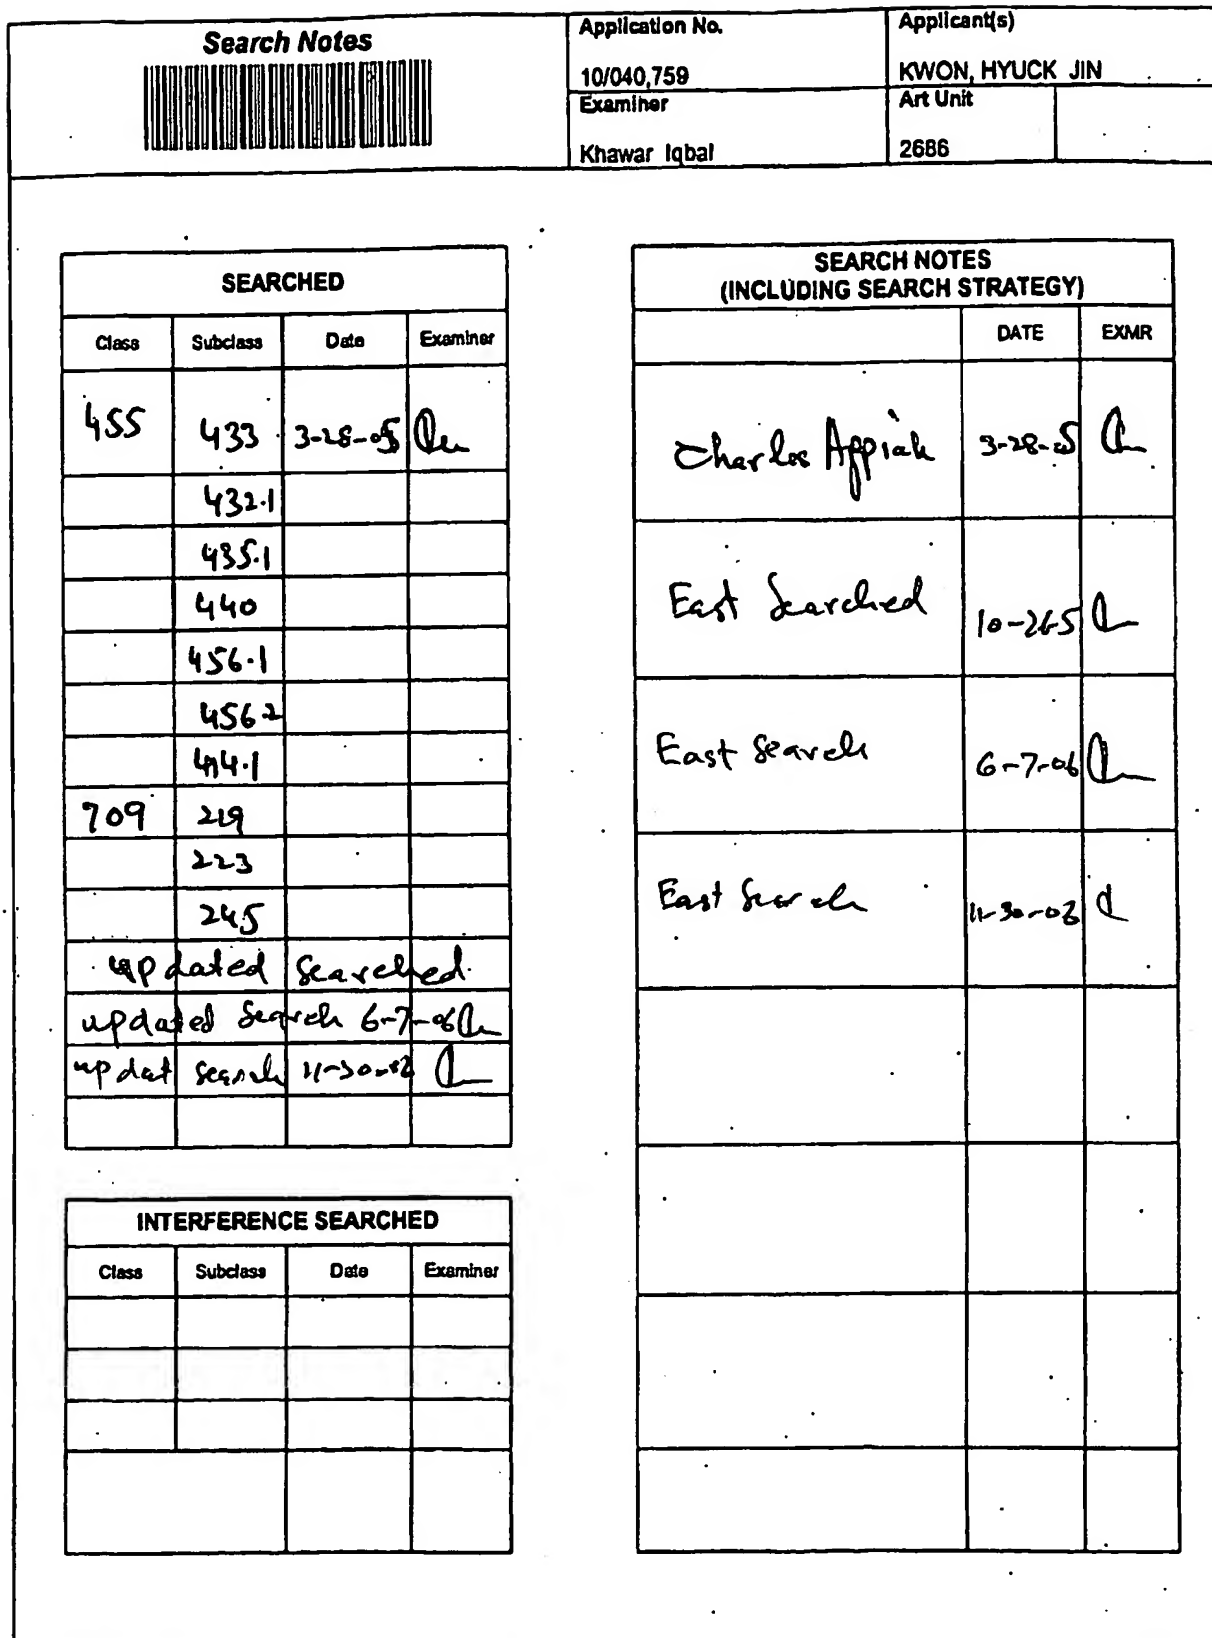 Search Notes
Application No.
10/040,759
Applicant(s)
KWON, HYUCK JIN
Examiner
Khawar Iqbal
Art Unit
2686
SEARCHED
Class Subclass Date Examiner
455 433 3-28-05
432.1
435.1
440
456.1
456.2
414.1
709 219
223
245
updated searched
updated search 6-7-06
updat search 11-30-06
INTERFERENCE SEARCHED
Class Subclass Date Examiner
SEARCH NOTES
(INCLUDING SEARCH STRATEGY)
DATE EXMR
Charles Appiah 3-28-05
East Searched 10-26-5
East Search 6-7-06
East Search 11-30-06